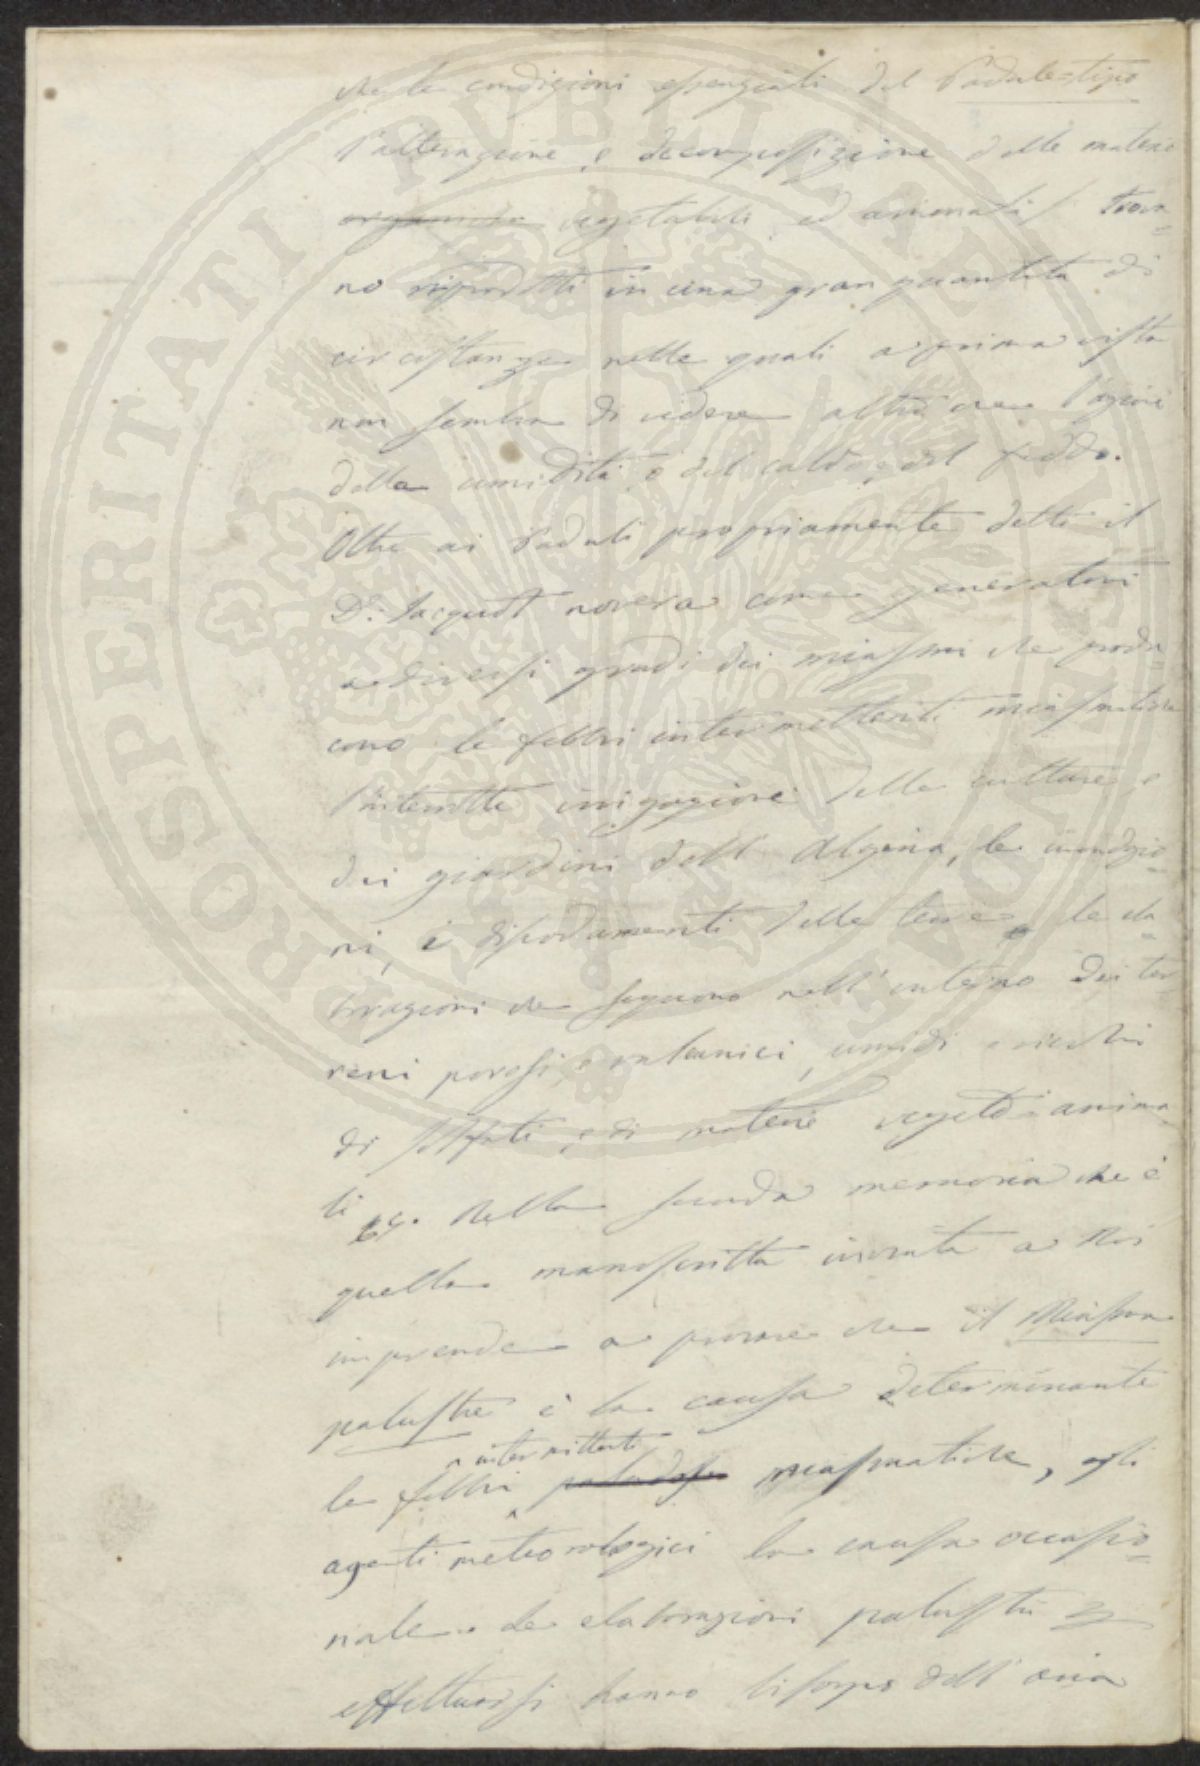 che le condizioni essenziali del Padule-tipo
l'alterazione, e decomposizione delle materie
organiche vegetabili, ed animali, trova=
no riprodotti in una gran quantità di
circostanze nelle quali a prima vista
non sembra di vedere altro che l'azione
della umidità, e del caldo, e del freddo.
Oltre ai Paduli propriamente detti il
D.r Jacquot novera come generatori
a diversi gradi dei miasmi che produ=
cono le febbri intermittenti miasmatiche
l'interrotte irrigazioni delle culture, e
dei giardini dell'Algeria, le inondazio=
ni, i disodamenti delle terre, le ela=
borazioni che seguono nell'interno dei ter
reni porosi, e vulcanici, umidi e ricchi
di solfati, e di materie vegeto-anima
li &. Nella seconda memoria che è
quella manoscritta inviata a Noi
imprende a provare che il Miasma
palustre è la causa determinante
intermittenti
le febbri paludose miasmatiche, gli
agenti meteorologici la causa occasio=
nale. Le elaborazioni palustri per
effettuarsi hanno bisogno dell'aria
PROSPERITATI PUBLICAE AUGENDAE